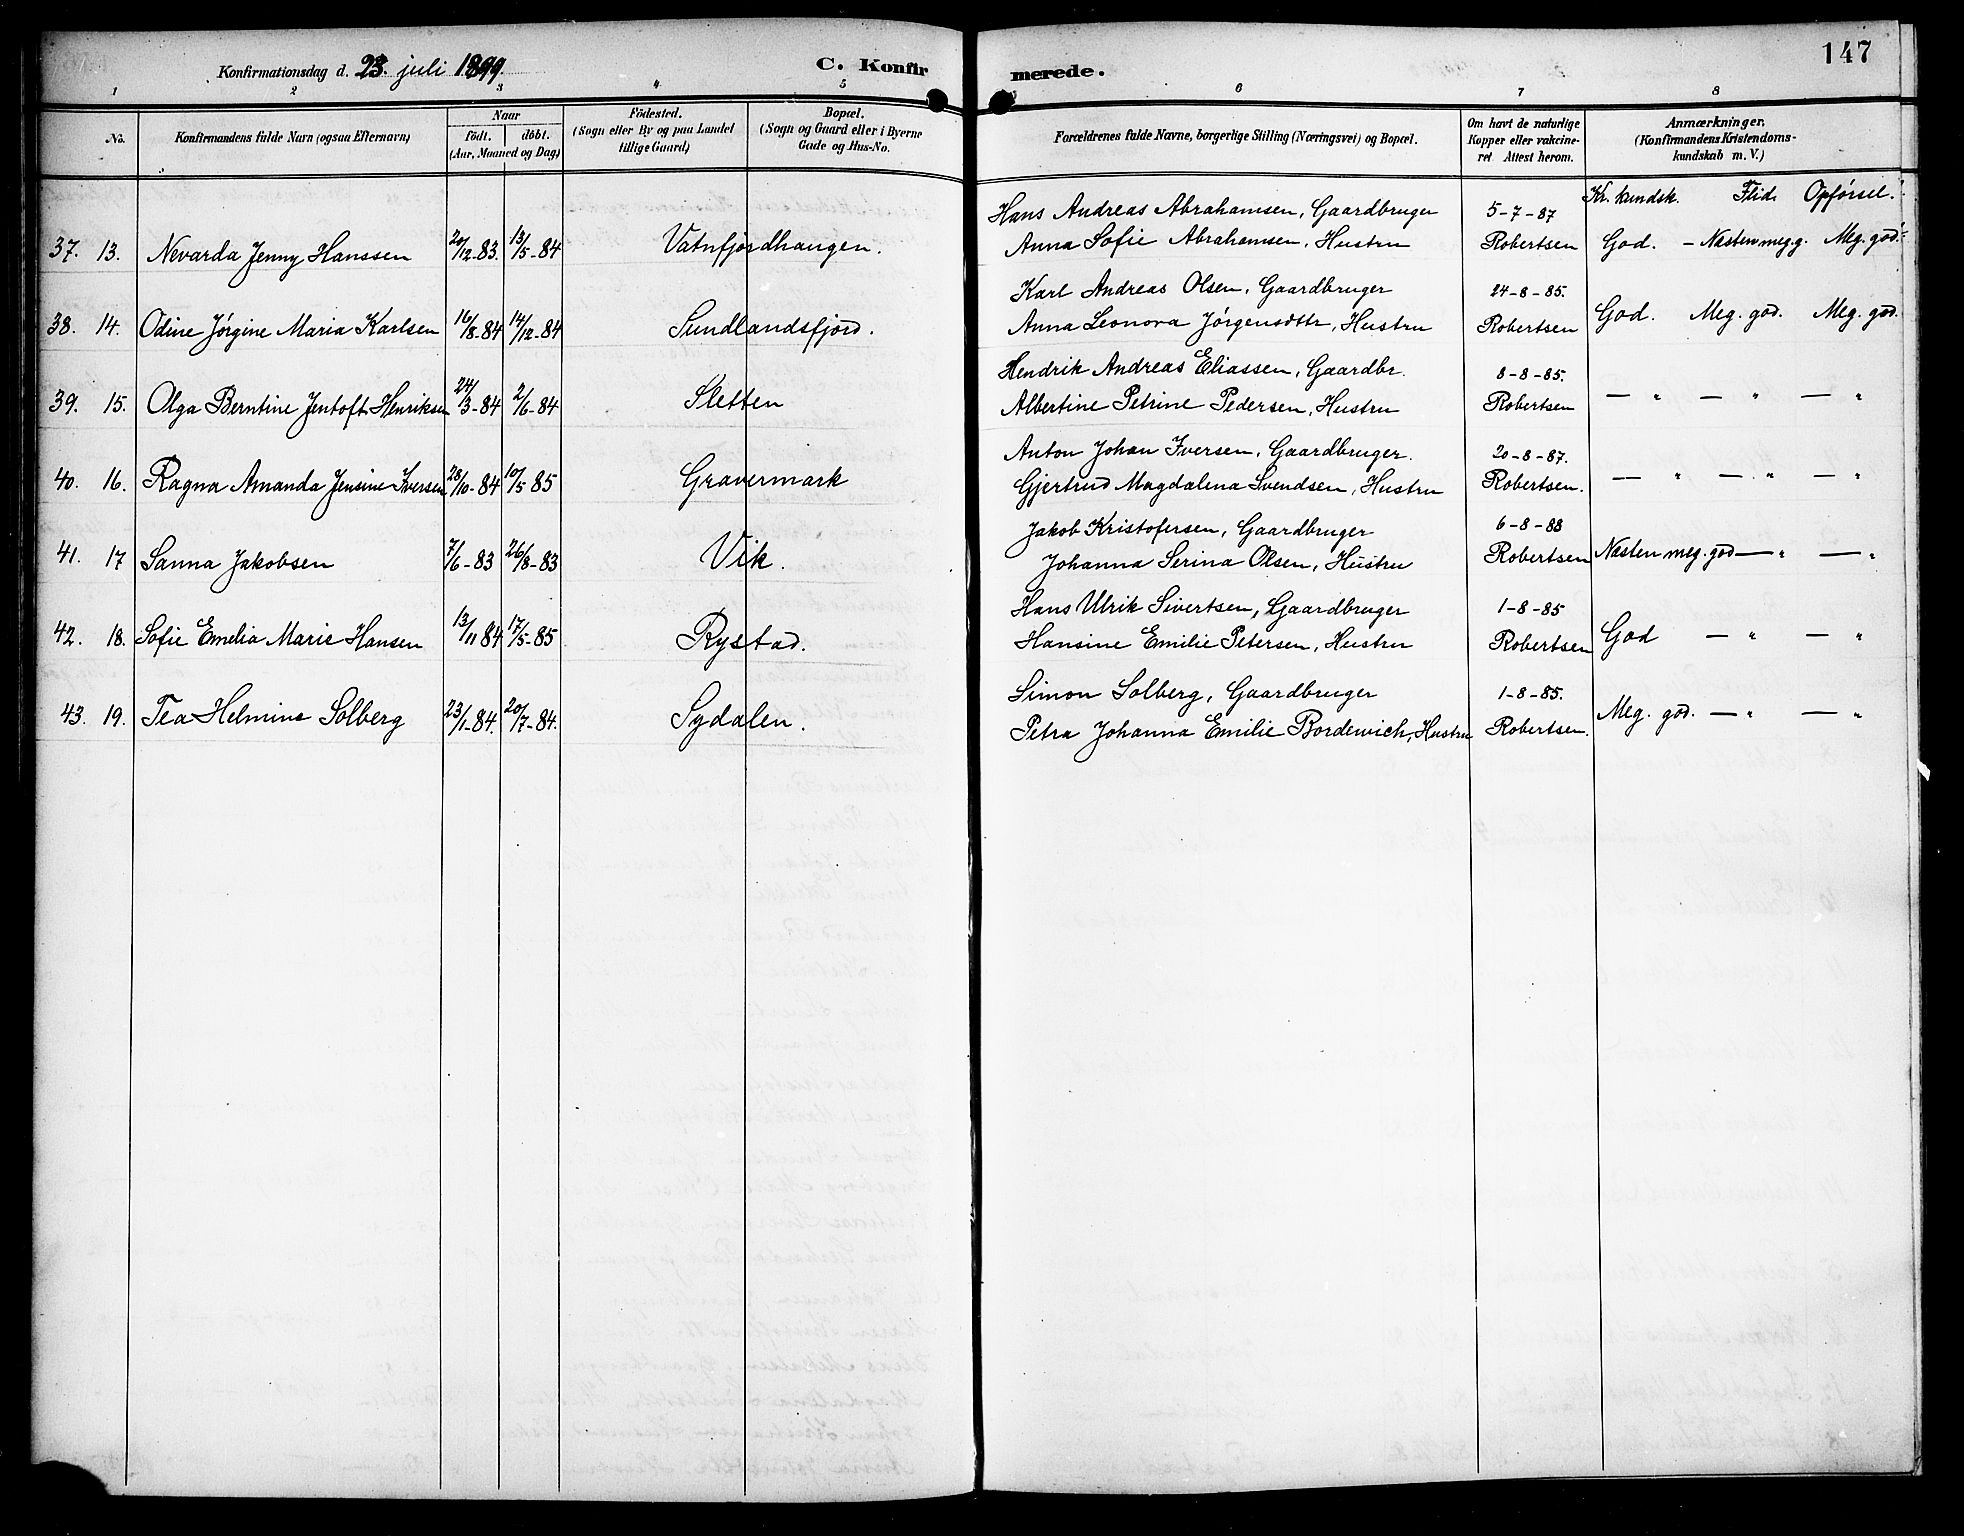 147
Konfirmationsdag d. 23. juli 1899. C. Konfirmerede.
1 2 3 4 5 6 7 8
No. Konfirmandens fulde Navn (ogsaa Efternavn) Naar født. døbt. (Aar, Maaned og Dag) Fødested. (Sogn eller By og paa Landet tillige Gaard) Bopæl. (Sogn og Gaard eller i Byerne Gade og Hus-No. Forældrenes fulde Navne, borgerlige Stilling (Næringsvei) og Bopæl. Om havt de naturlige Kopper eller vakcineret. Attest herom. Anmærkninger. (Konfirmandens Kristendomskundskab m. V.)
Kr. kundsk. Flid. Opførsel.
Hans Andreas Abrahamsen, Gaardbruger 5-7-87
37. 13. Nevarda Jenny Hanssen 20/12-83. 13/5-84 Vatnfjordhaugen. Anna Sofie Abrahamsen, Hustru Robertsen God. - Næsten meg. g. Meg. god.
Karl Andreas Olsen, Gaardbruger 24-8-85.
38. 14. Odine Jørgine Maria Karlsen 16/8-84 14/12-84 Sundlandsfjord. Anna Leonora Jørgensdttr, Hustru Robertsen God. Meg. god. Meg. god.
Hendrik Andreas Eliassen, Gaardbr. 8-8-85.
39. 15. Olga Berntine Jentoft Henriksen 24/3-84 2/6-84 Sletten Albertine Petrine Pedersen, Hustru Robertsen — " — " — "
Anton Johan Iversen, Gaardbruger. 20-8-87.
40. 16. Ragna Amanda Jensine Iversen 28/10-84 10/5 85 Gravermark Gjertrud Magdalena Svendsen, Hustru Robertsen. — " — " — "
Jakob Kristofersen, Gaardbruger 6-8-88
41. 17 Sanna Jakobsen 7/6-83 26/8-83 Vik. Johanna Serina Olsen, Hustru Robertsen Næsten meg. god — " — "
Hans Ulrik Sivertsen, Gaardbruger 1-8-85
42. 18. Sofie Emelia Marie Hansen 13/11 84 17/5-85 Rystad. Hansine Emilie Petersen, Hustru Robertsen God — " — "
Simon Solberg, Gaardbruger 1-8-85.
43. 19. Tea Helmine Solberg 23/1-84. 20/7-84. Sydalen. Petra Johanna Emilie Bordewich, Hustru Robertsen. Meg. god. — " — "